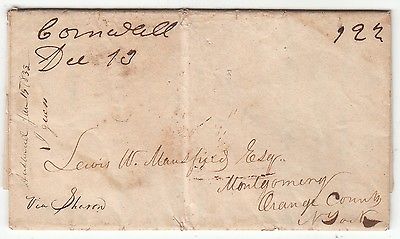 Cornwall
Dec 13
12½
Lewis W. Mansfield Esq.
Montgomery
Orange County
N York
Via Sharon